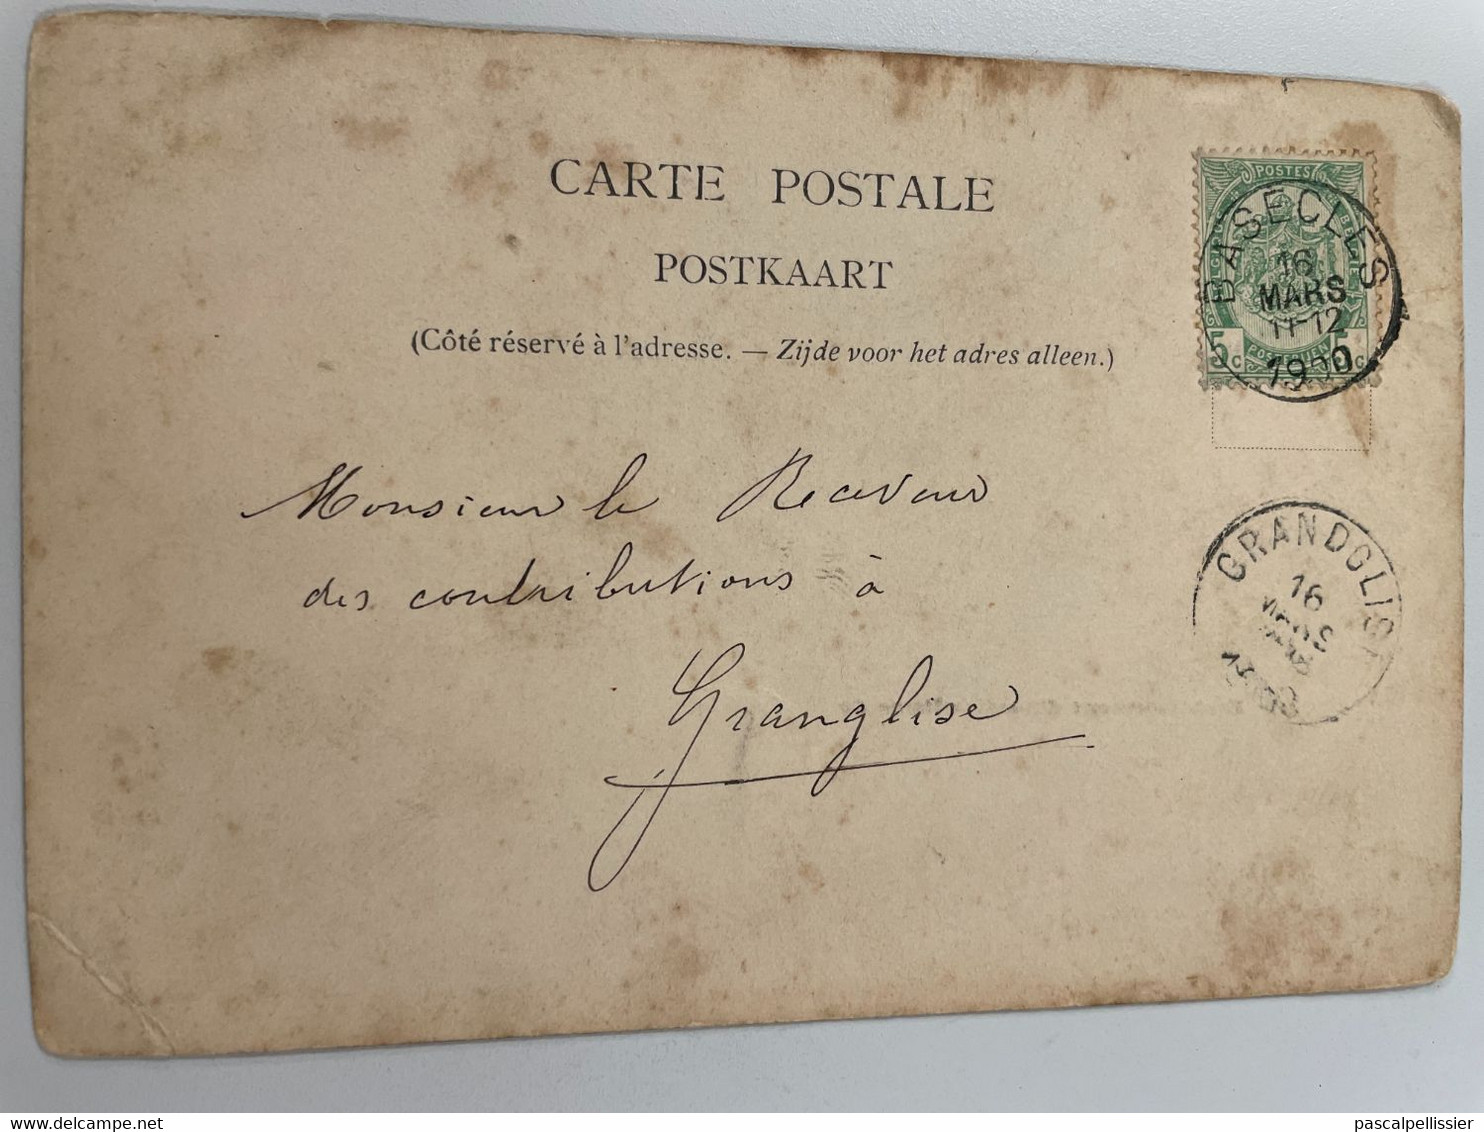 CARTE POSTALE
POSTKAART
(Côté réservé à l'adresse. — Zijde voor het adres alleen.)
POSTES
5c 5c
BASECLES
16
MARS
11-12
1900
Monsieur le Receveur
des contributions à
Granglise
GRANDGLISE
16
MARS
pascalpellissier
delcampe.net